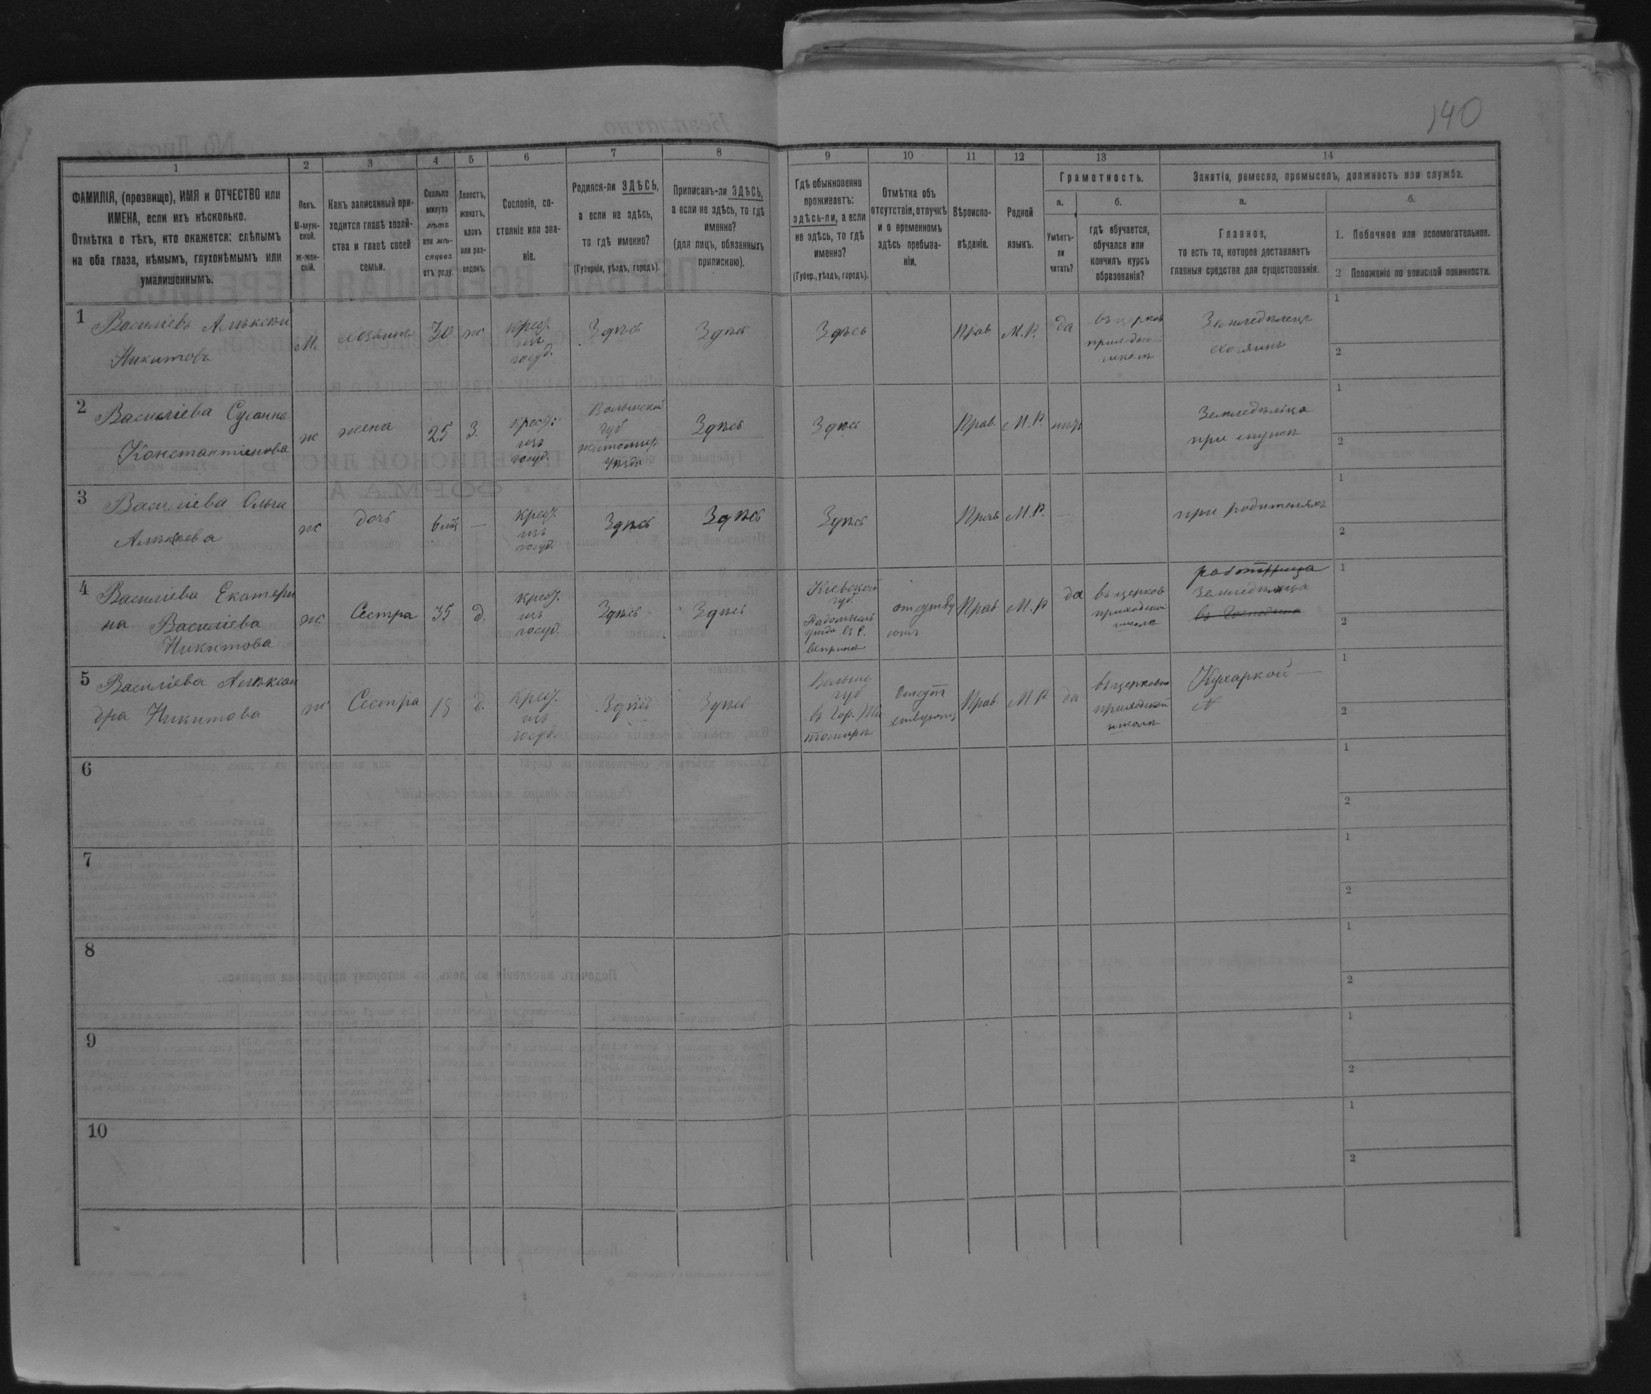 140
1 2 3 4 5 6 7 8 9 10 11 12 13 14
ФАМИЛІЯ, (прозвище), ИМЯ и ОТЧЕСТВО или
ИМЕНА, если ихъ нѣсколько.
Отмѣтка о тѣхъ, кто окажется: слѣпымъ
на оба глаза, нѣмымъ, глухонѣмымъ или
умалишеннымъ.
Полъ.
М-муж-
ской.
ж-жен-
скій.
Какъ записанный при-
ходится главѣ хозяй-
ства и главѣ своей
семьи.
Сколько
минуло
лѣтъ
или мѣ-
сяцевъ
отъ роду.
Холостъ,
женатъ,
вдовъ
или раз-
веденъ.
Сословіе, со-
стояніе или зва-
ніе.
Родился-ли ЗДѢСЬ,
а если не здѣсь,
то гдѣ именно?
(Губернія, уѣздъ, городъ).
Приписанъ-ли ЗДѢСЬ,
а если не здѣсь, то гдѣ
именно?
(для лицъ, обязанныхъ
припискою).
Гдѣ обыкновенно
проживаетъ:
здѣсь-ли, а если
не здѣсь, то гдѣ
именно?
(Губер., уѣздъ, городъ).
Отмѣтка объ
отсутствіи, отлучкѣ
и о временномъ
здѣсь пребыва-
ніи.
Вѣроиспо-
вѣданіе.
Родной
языкъ.
Грамотность.
а.
Умѣетъ-
ли
читать?
б.
гдѣ обучается,
обучался или
кончилъ курсъ
образованія?
Занятія, ремесло, промыселъ, должность или служба.
а.
Главное,
то есть то, которое доставляетъ
главныя средства для существованія.
б.
1. Побочное или вспомогательное.
2 Положеніе по воинской повинности.
1
Василіевъ Алексѣй
Никитовъ
М.
хозяинъ
30
ж
крест.
изъ
госуд.
Здѣсь
Здѣсь
Здѣсь
Прав
М.Р.
да
въ церков
приходск
школѣ
Земледѣлецъ
хозяинъ
1
2
2
Василіева Сусанна
Константинова
ж
жена
25
З.
крест.
изъ
госуд.
Волынской
губ
житомир
уѣзда
Здѣсь
Здѣсь
Прав.
М.Р.
нѣтъ
Земледѣлица
при мужѣ
1
2
3
Василіева Ольга
Алексѣева
ж
дочь
6 мѣс
—
крест.
изъ
госуд.
Здѣсь
Здѣсь
Здѣсь
Прав
М.Р.
—
при родителяхъ
1
2
4
Василіева Екатери
на Василіева
Никитова
ж
Сестра
35
д.
крест.
изъ
госуд.
Здѣсь
Здѣсь
Кіевской
губ.
Радомысль
уѣзда въ с.
отсутству
Прав
М.Р
да
въ церков
приходской
школѣ
земледѣлица
1
2
5
Василіева Алексан
дра Никитова
ж
Сестра
д.
крест.
изъ
госуд.
Здѣсь
Здѣсь
Волынс
губ
въ гор. Жи
томирѣ
Прав
М.Р
да
въ церковно
приходской
школѣ
Кухаркой —
1
2
6
1
2
7
1
2
8
1
2
9
1
2
10
1
2